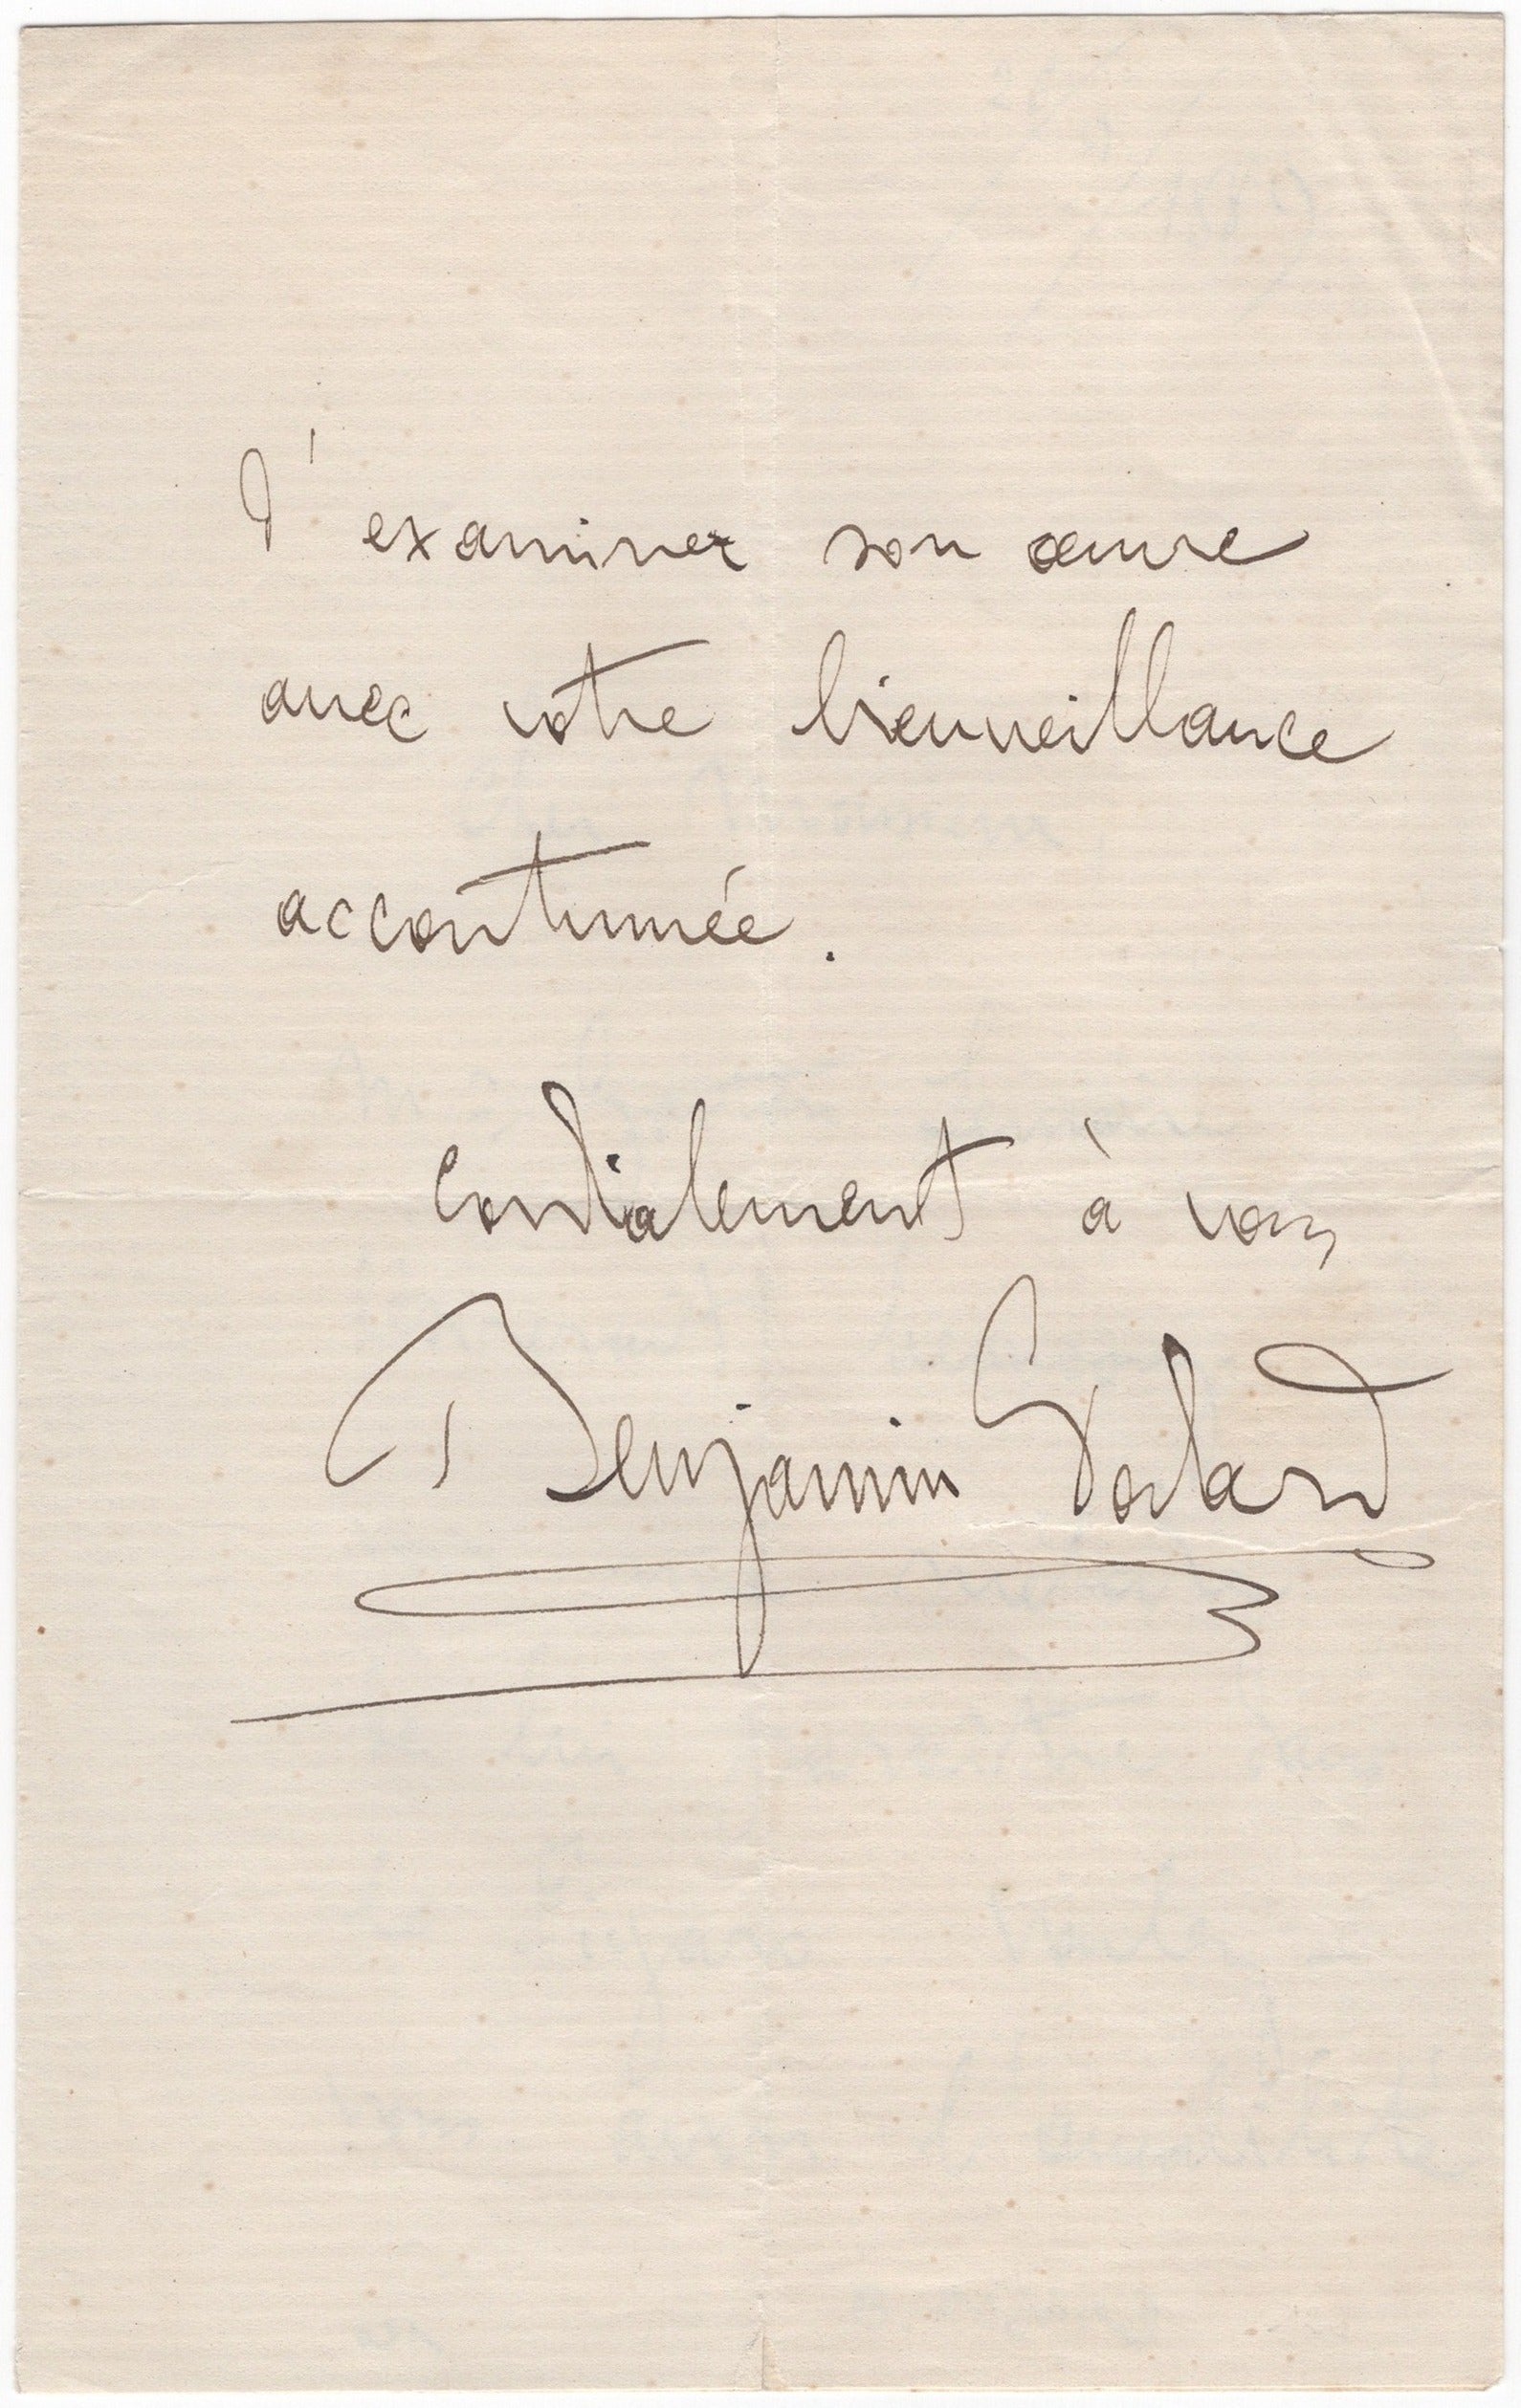 d'examiner son œuvre
avec votre bienveillance
accoutumée.
Cordialement à vous
Benjamin Godard